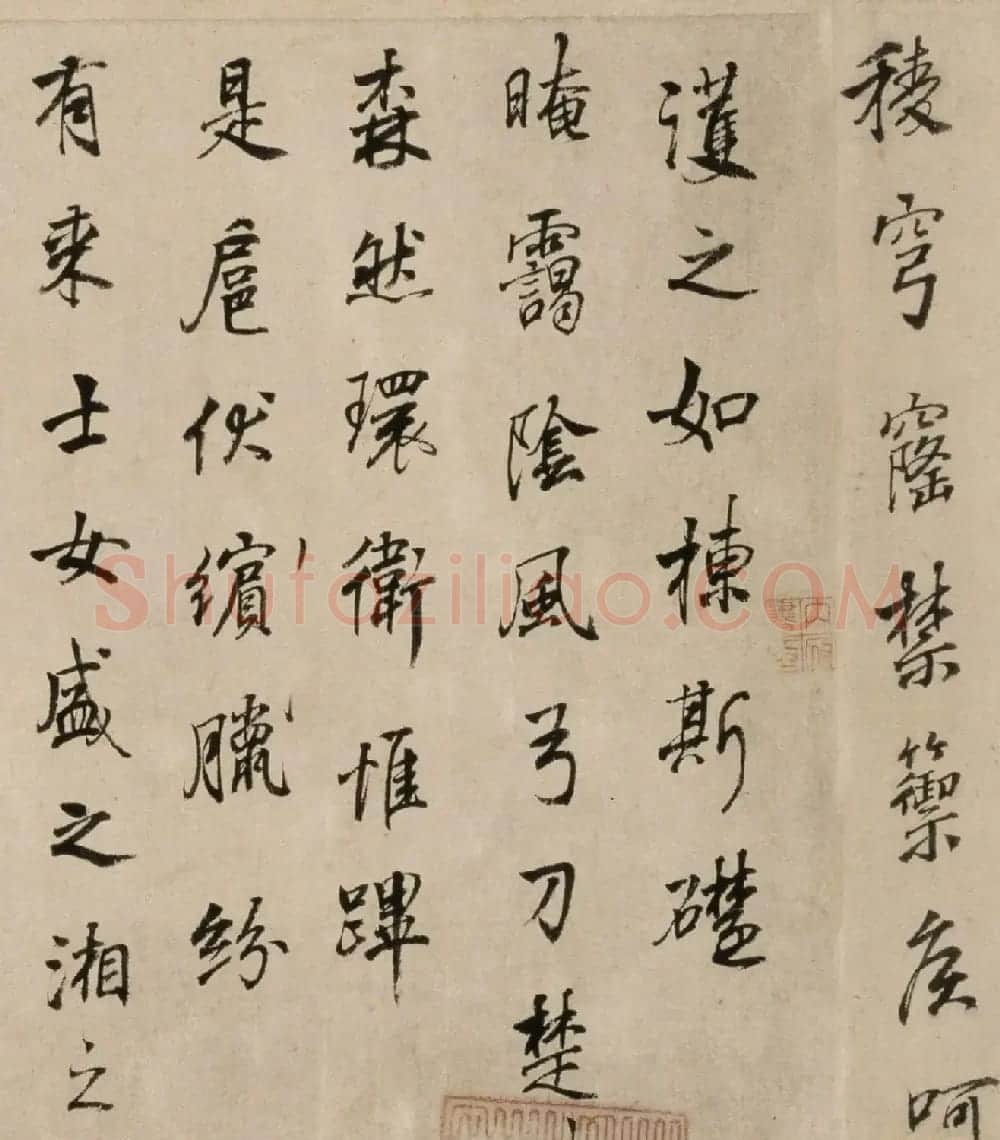 稜穹窿禁籞矦呵
護之如棟斯礎
晻靄陰風弓刀楚
森然環衛惟蹕
是扈伏繽臘紛
有來士女盛之湘之
Shufaziliao.COM